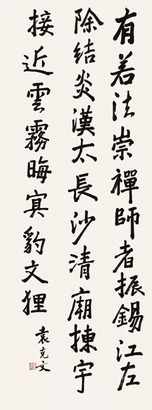 有若法崇禪師者振錫江左
除結炎漢太長沙清廟棟宇
接近雲霧晦冥豹文狸
袁克文